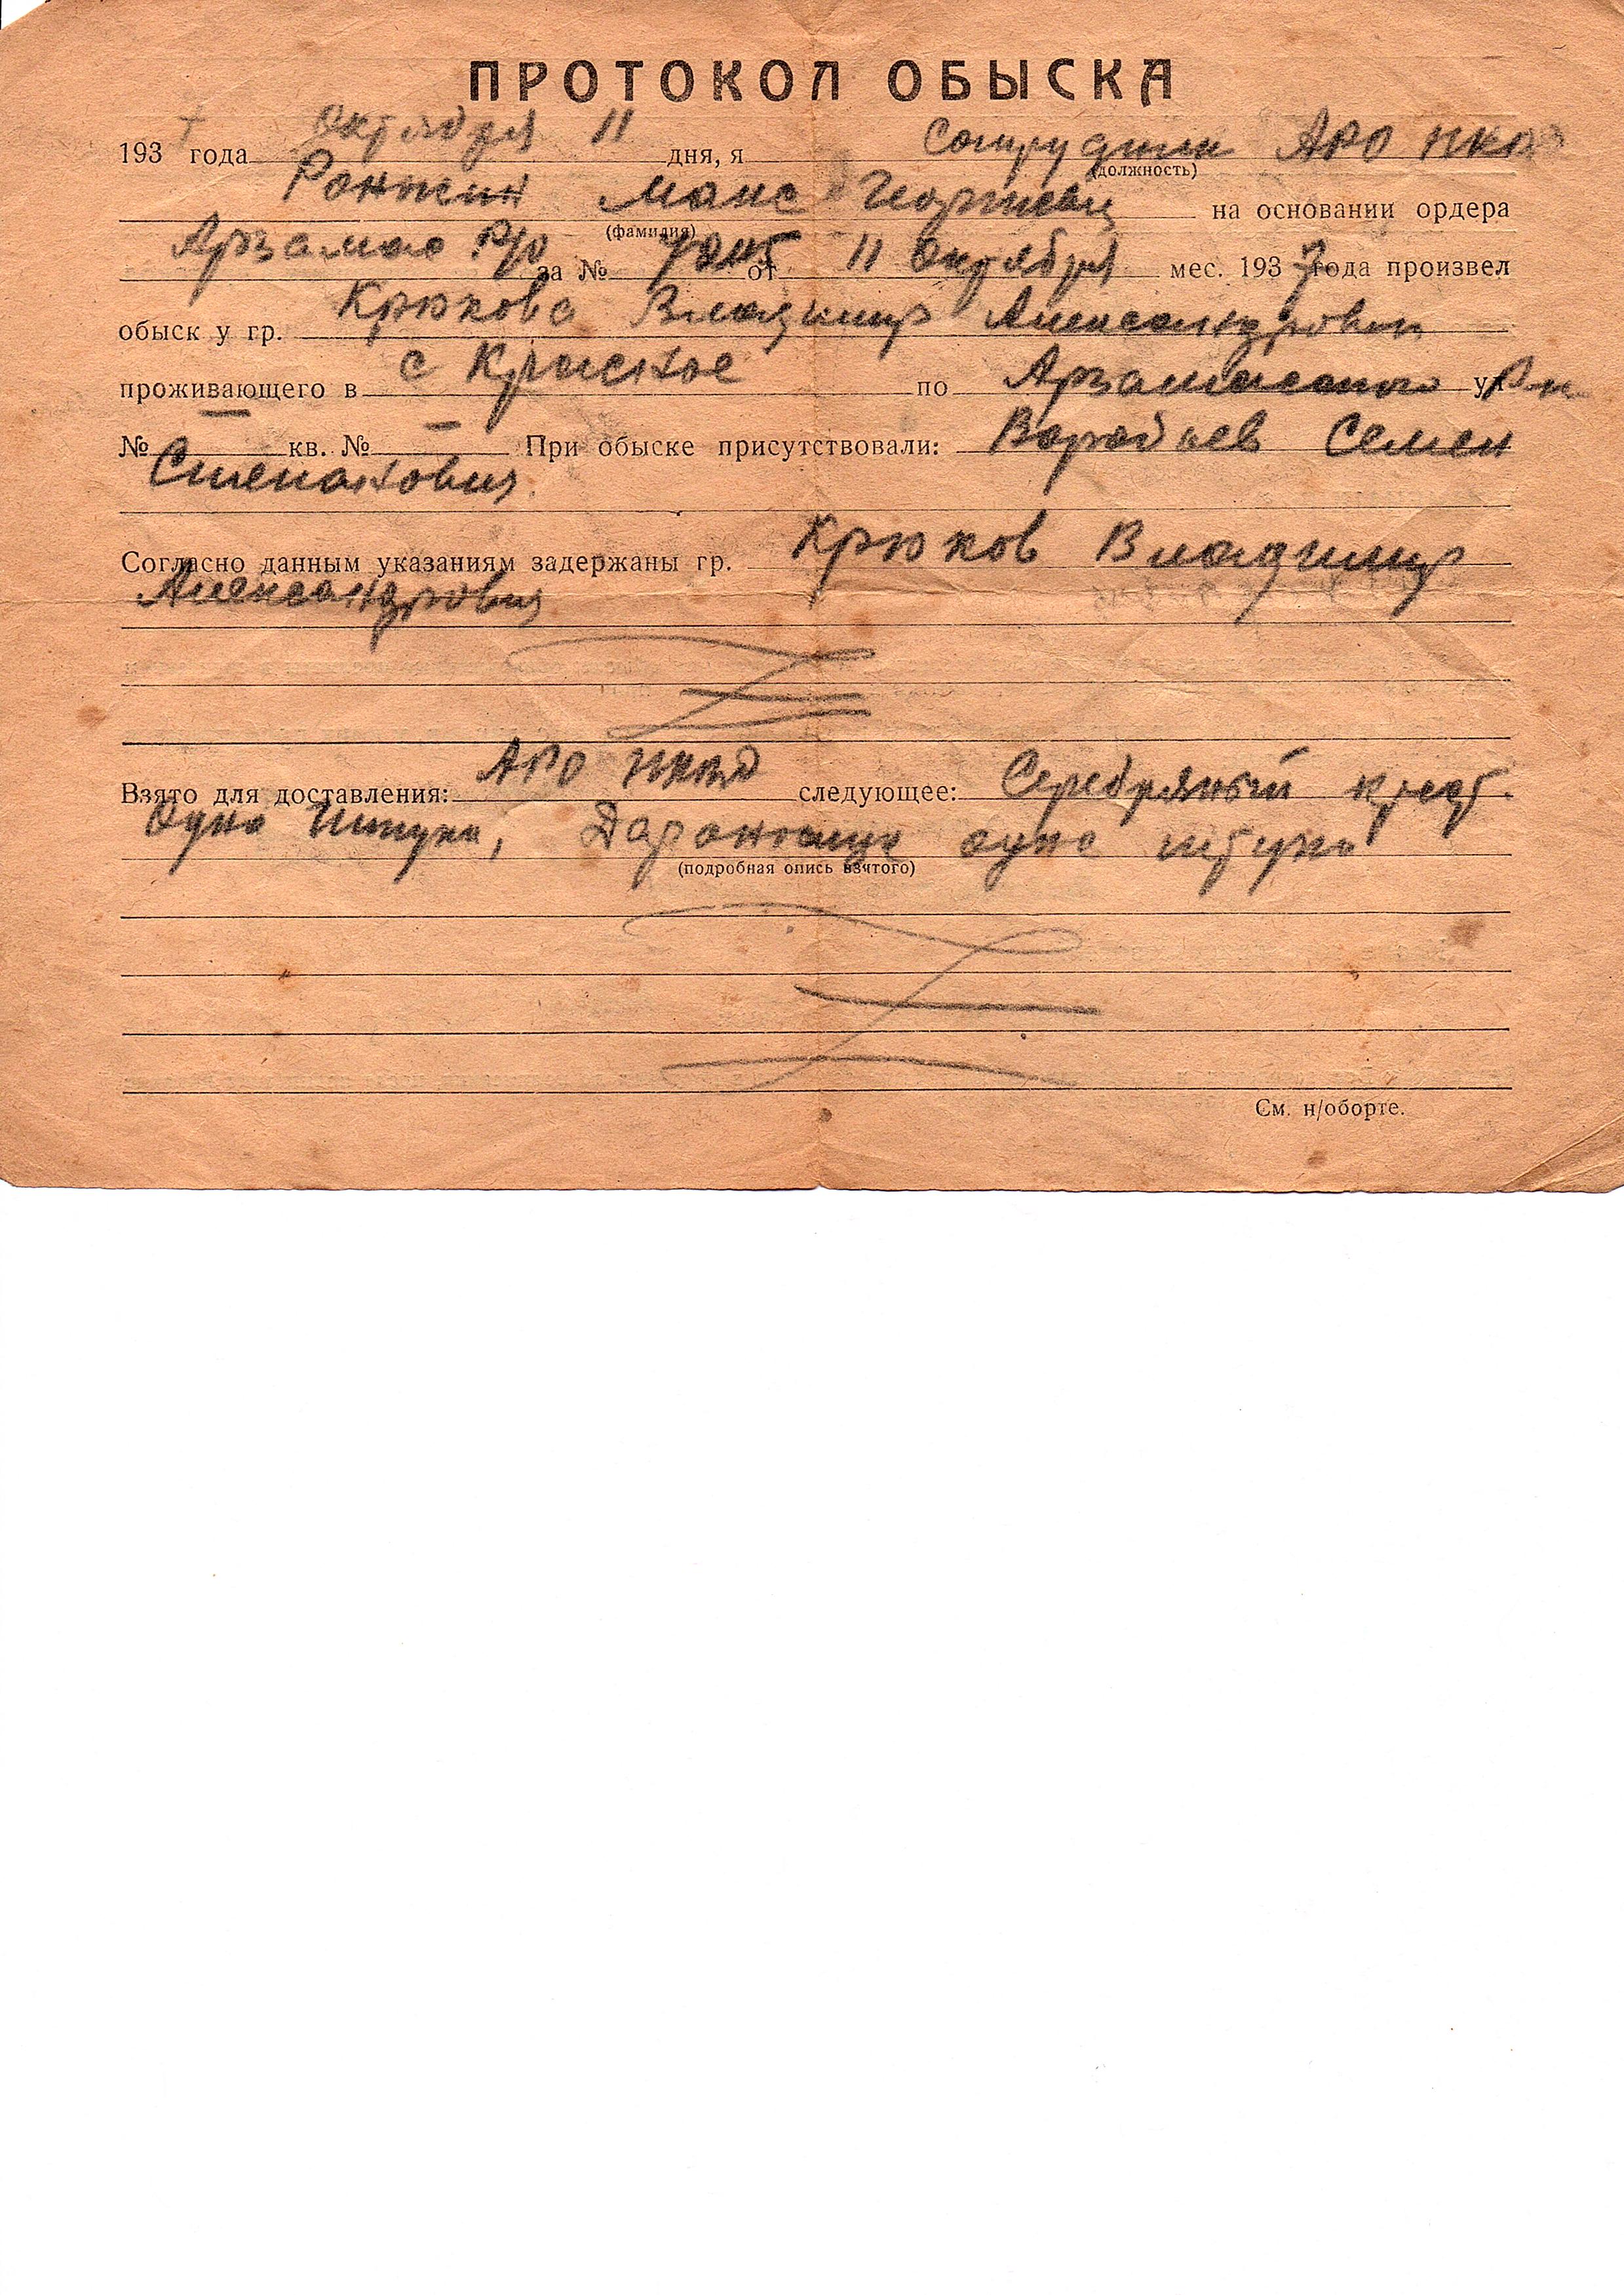 ПРОТОКОЛ ОБЫСКА
1937 года Октября 11 дня, я Сотрудник АРО НКВД
(должность)
Ронжин Макс Георгиевич на основании ордера
(фамилия)
Арзамас Р/О за № от 11 Октября мес. 1937 года произвел
обыск у гр. Крюкова Владимир Александрович
проживающего в с Красное по Арзамасского ул Р-н
№ — кв. № — При обыске присутствовали: Воробьев Семен
Степанович
Согласно данным указаниям задержаны гр. Крюков Владимир
Александрович
Взято для доставления: АРО НКВД следующее: Серебряный крест
одна штука, одна штука
(подробная опись взятого)
См. н/оборте.